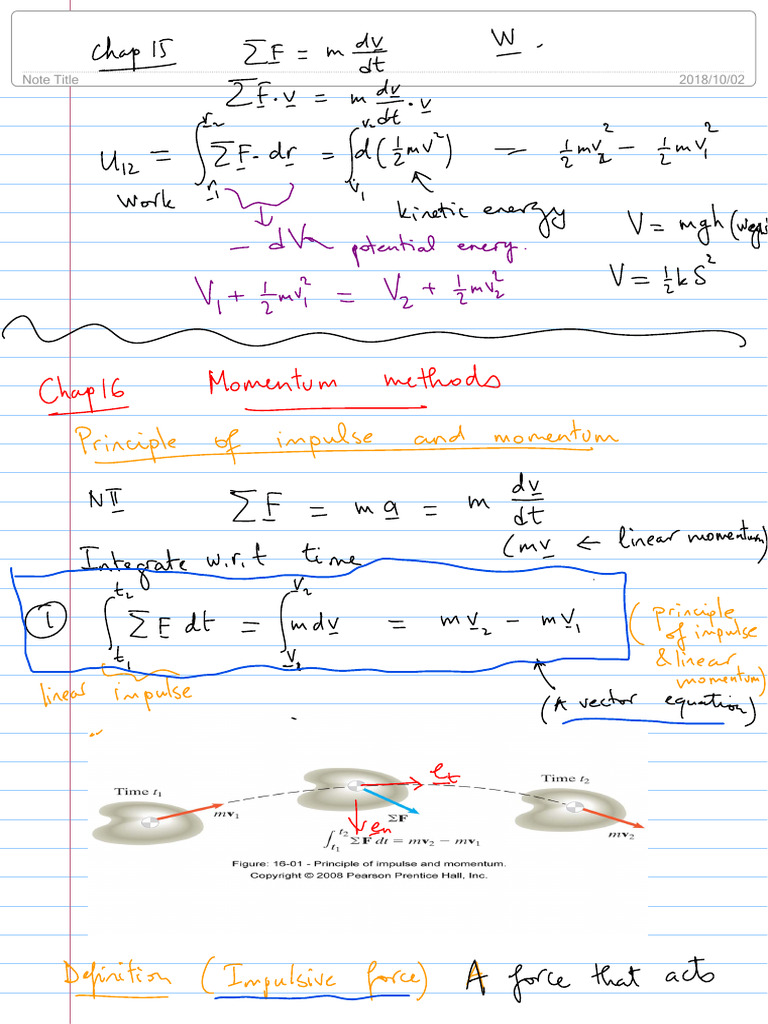 Chap 15 ΣF = m dv/dt W .
Note Title 2018/10/02
ΣF · v = m dv/dt · v
U₁₂ = ∫_{r₁}^{r₂} ΣF · dr = ∫_{v₁}^{v₂} d(½mv²) = ½mv₂² − ½mv₁²
work
kinetic energy
V = mgh
− dV potential energy.
V = ½kS²
V₁ + ½mv₁² = V₂ + ½mv₂²
Chap 16 Momentum methods
Principle of impulse and momentum
NII ΣF = ma = m dv/dt
(mv ← linear momentum)
Integrate w.r.t time
① ∫_{t₁}^{t₂} ΣF dt = ∫_{v₁}^{v₂} m dv = mv₂ − mv₁
(principle
of impulse
& linear
momentum)
linear impulse
(A vector equation)
e_t
Time t₁
Time t₂
mv₁
ΣF
e_n
mv₂
∫_{t₁}^{t₂} ΣF dt = mv₂ − mv₁
Figure: 16-01 - Principle of impulse and momentum.
Copyright © 2008 Pearson Prentice Hall, Inc.
Definition (Impulsive force) A force that acts